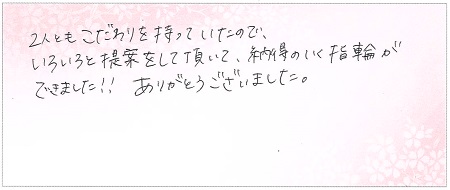 2人ともこだわりを持っていたので、
いろいろと提案をして頂いて、納得のいく指輪が
できました!! ありがとうございました。